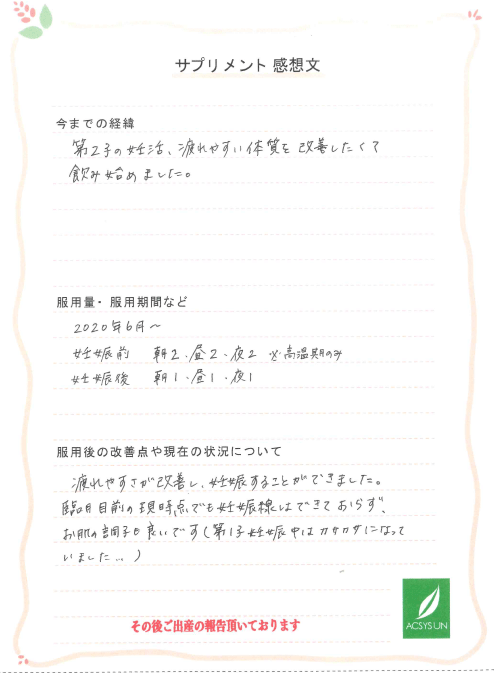 サプリメント 感想文
今までの経緯
第2子の妊活、疲れやすい体質を改善したくて
飲み始めました。
服用量・服用期間など
2020年6月～
妊娠前 朝2、昼2、夜2 ※高温期のみ
妊娠後 朝1、昼1、夜1
服用後の改善点や現在の状況について
疲れやすさが改善し、妊娠することができました。
臨月目前の現時点でも妊娠線はできておらず、
お肌の調子も良いです(第1子妊娠中はカサカサになって
いました…)
その後ご出産の報告頂いております
ACSYS UN